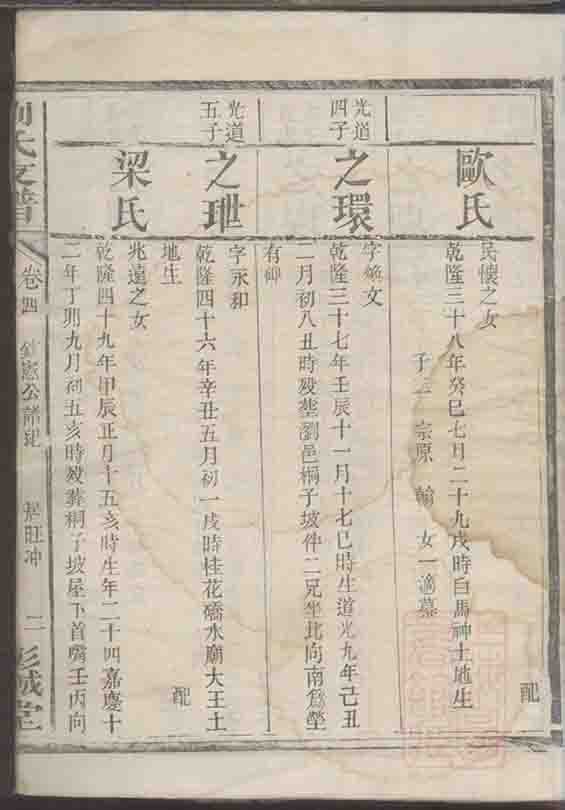 配
歐氏
民懷之女
乾隆三十八年癸巳七月二十九戌時白馬神土地生
子二 宗原 翰 女一適墓
光道
四子
之環
字煥文
乾隆三十七年壬辰十一月十七巳時生道光九年己丑
二月初八丑時歿塟瀏邑桐子坡伴二兄坐北向南為塋
有碑
光道
五子
之玭
字永和
乾隆四十六年辛丑五月初一戌時桂花礄水廟大王土
地生
配
梁氏
兆遠之女
乾隆四十九年甲辰正月十五亥時生年二十四嘉慶十
二年丁卯九月初五亥時歿葬桐子坡屋下首嘴壬丙向
氏支譜
卷四
公譜
旺冲
二
彭城堂